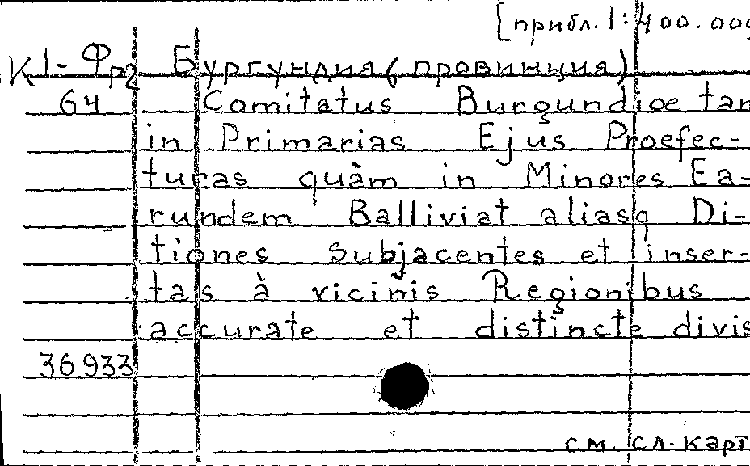 [прибл. 1:400.000
К 1-Фр2 Бургундия (провинция)
64 Comitatus Burgundiœ tam
in Primarias Ejus Proefec-
turas quàm in Minores Ea-
rundem Balliviat aliasq Di-
tiones subjacentes et inser-
tas à vicinis Regionibus
accurate et distincte divis
36933
см. сл. карт